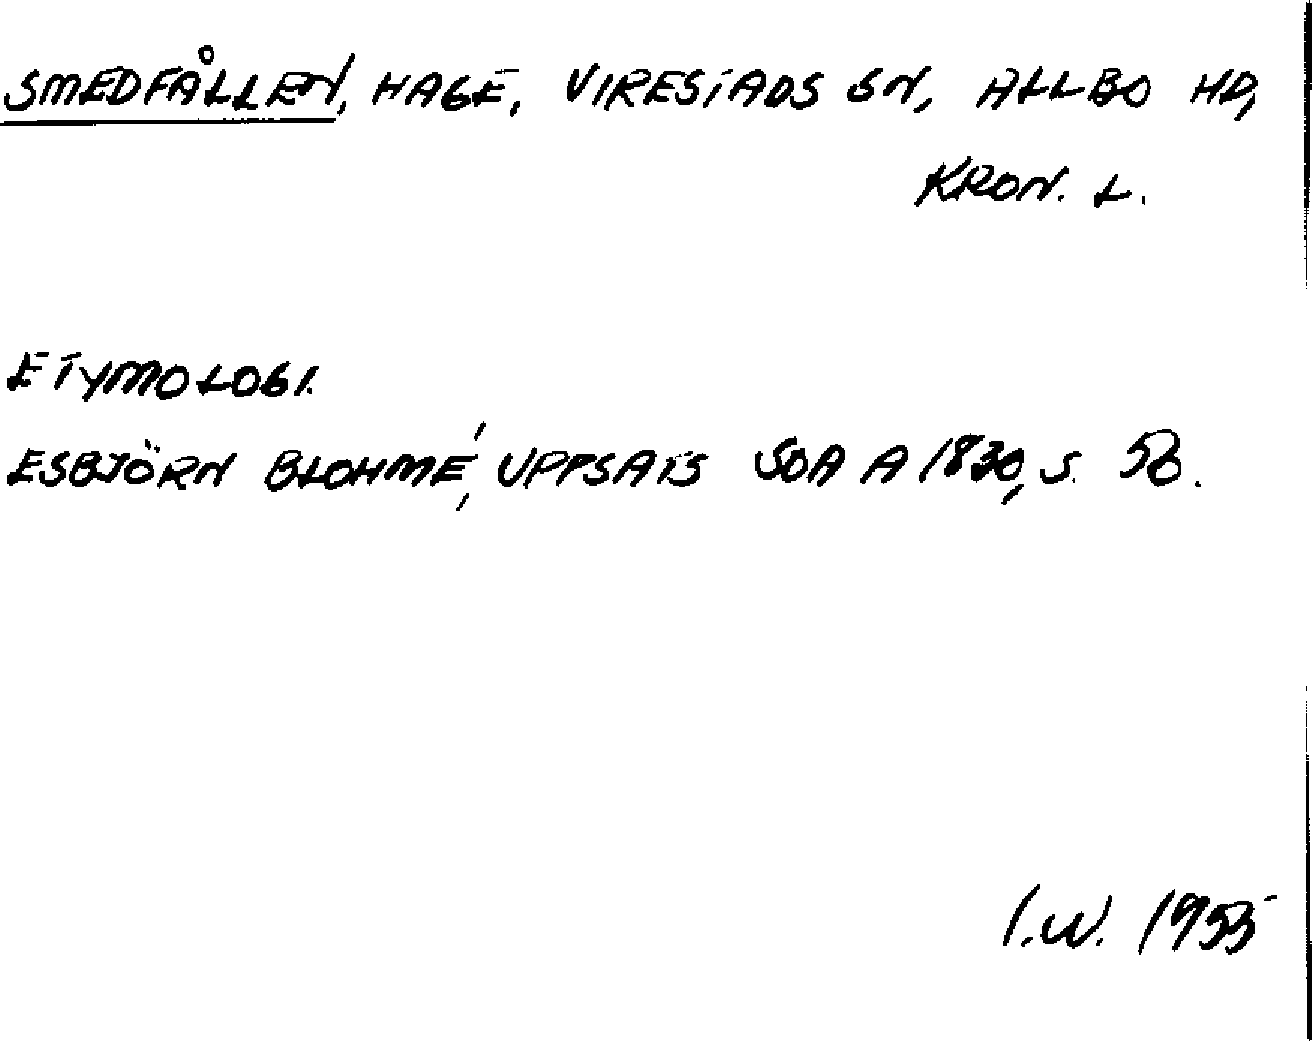 SMEDFÅLLEN, HAGE, VIRESTADS SN, ALLBO HD,
KRON. L.
ETYMOLOGI.
ESBJÖRN BLOHMÉ, UPPSATS SOA A 1830, S.
I.W. 1955